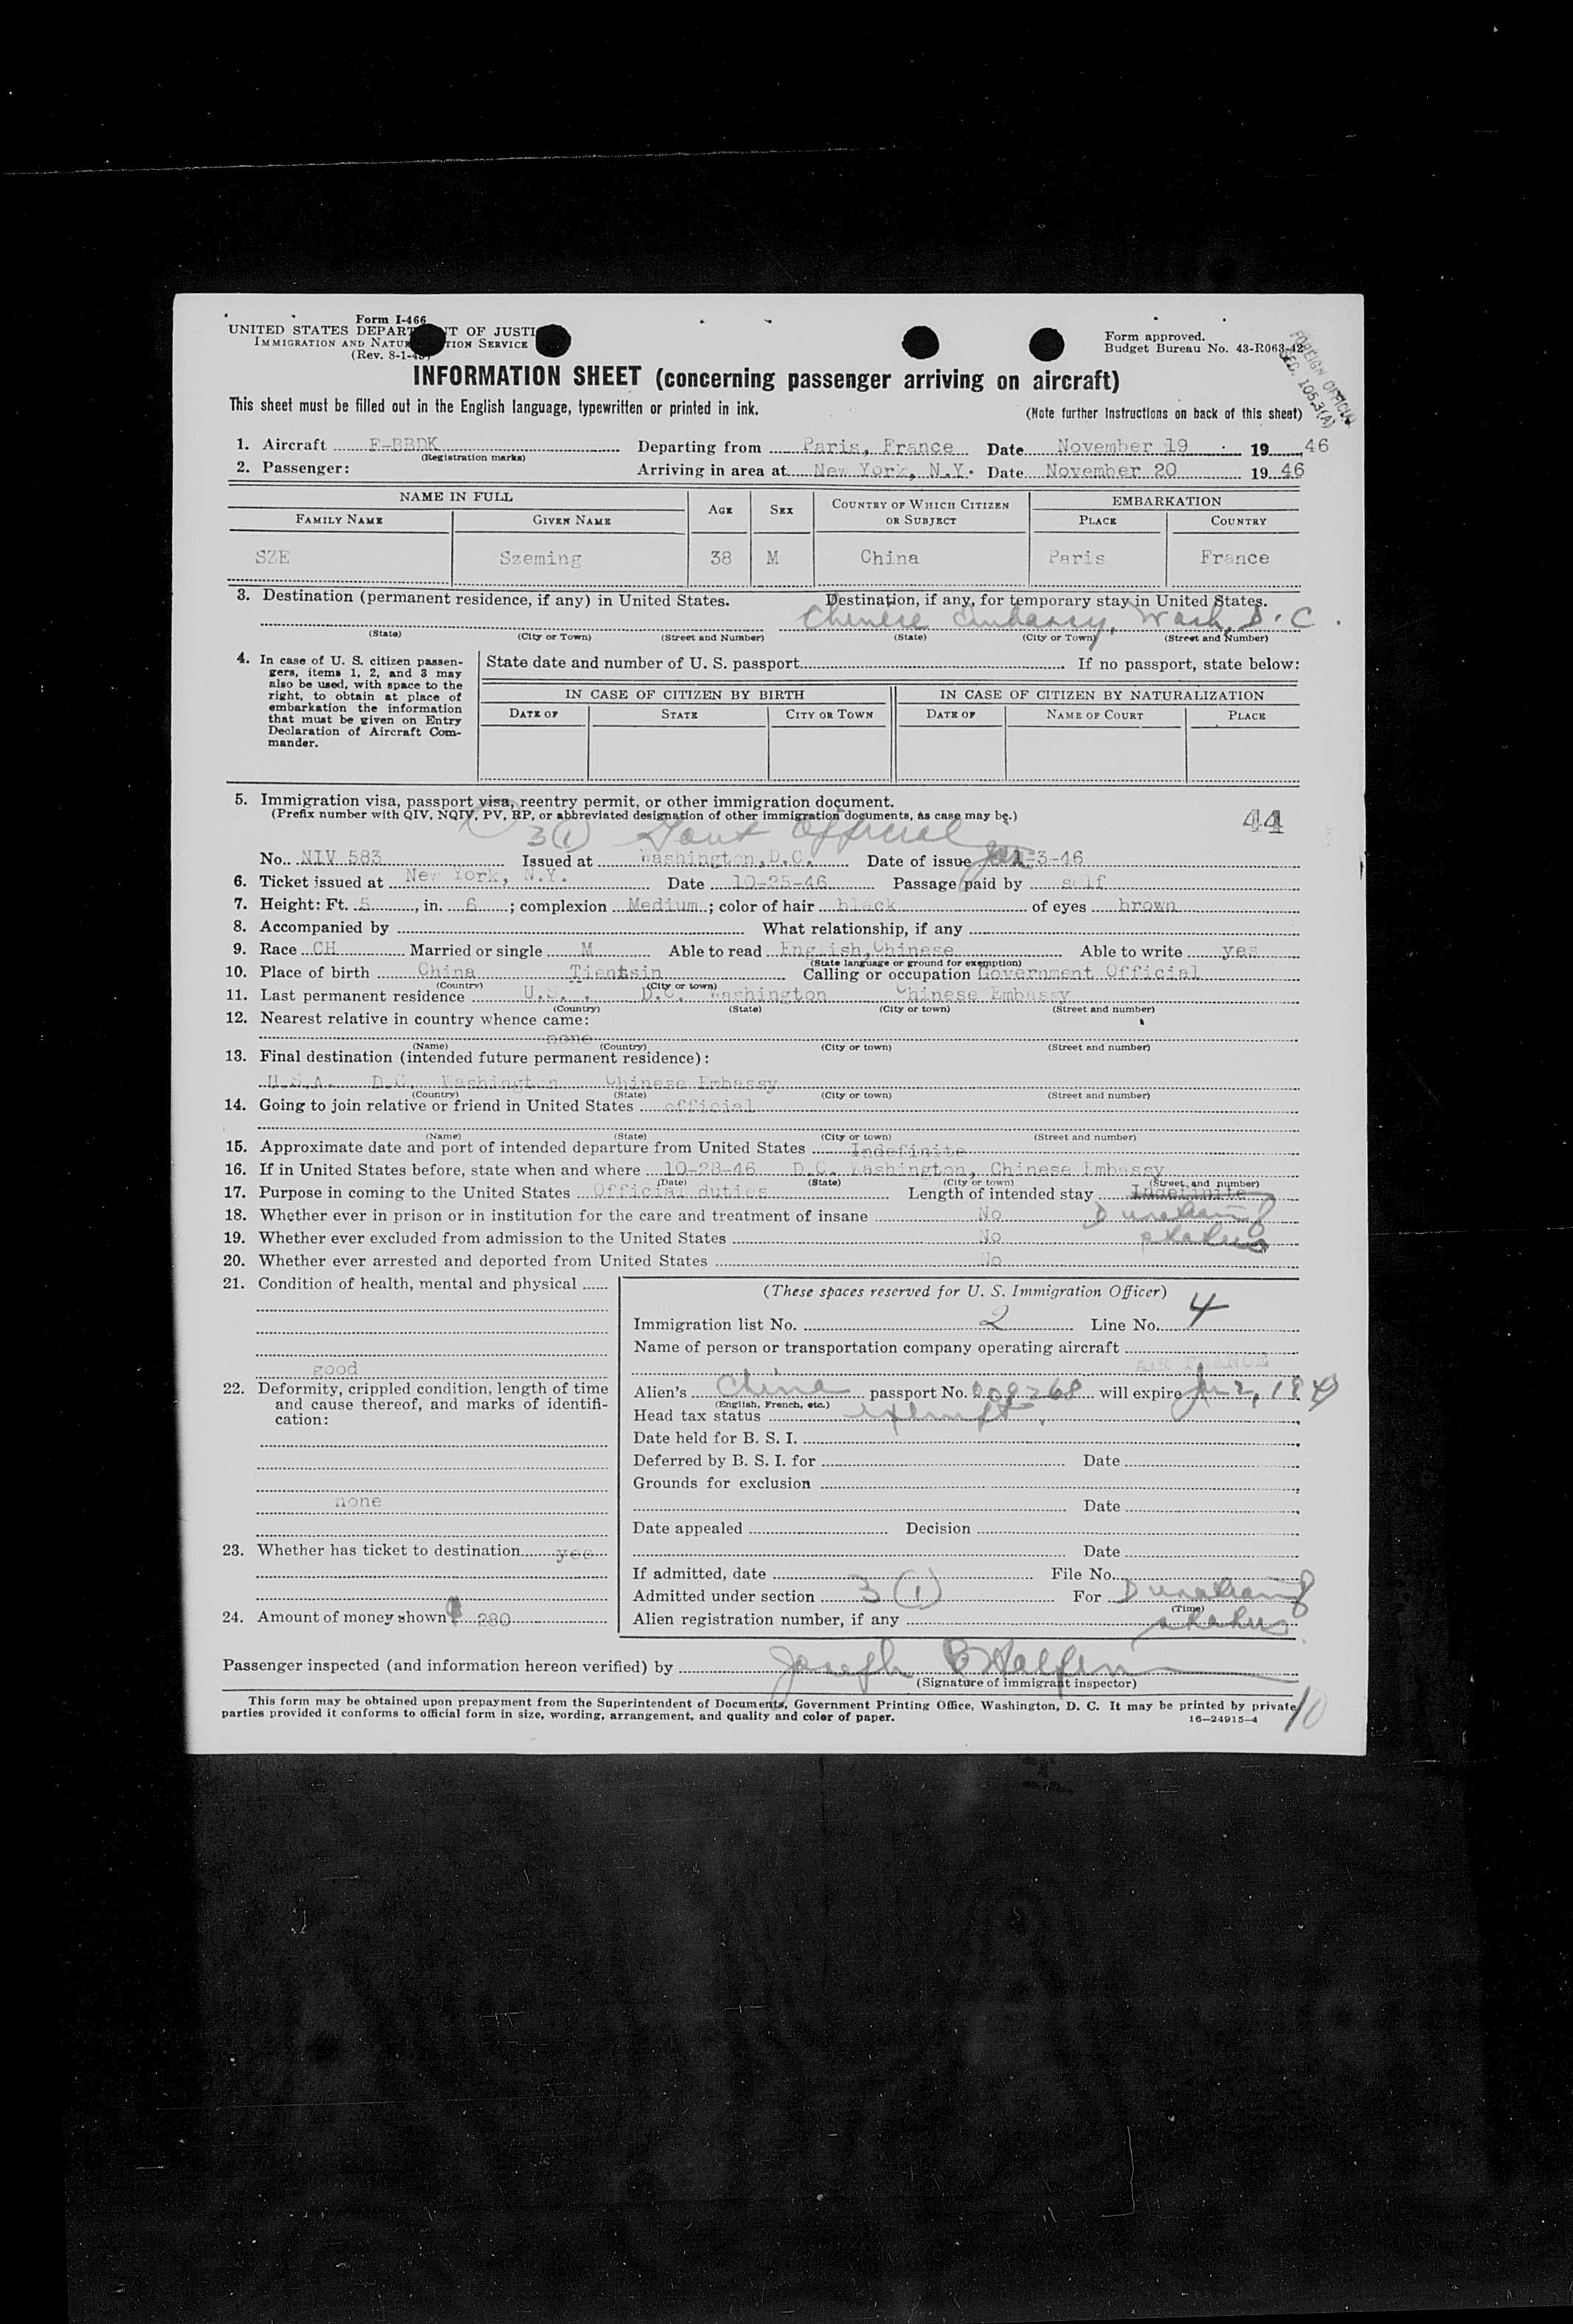 Form I-466
UNITED STATES DEPARTMENT OF JUSTICE
IMMIGRATION AND NATURALIZATION SERVICE
(Rev. 8-1-45)
Form approved.
Budget Bureau No. 43-R063-42
FOREIGN OFFICIAL
SEC. 105.3(A)
INFORMATION SHEET (concerning passenger arriving on aircraft)
This sheet must be filled out in the English language, typewritten or printed in ink. (Note further instructions on back of this sheet)
1. Aircraft F-BBDK Departing from Paris, France Date November 19 1946
(Registration marks)
2. Passenger: Arriving in area at New York, N.Y. Date November 20 1946
NAME IN FULL AGE SEX COUNTRY OF WHICH CITIZEN OR SUBJECT EMBARKATION
FAMILY NAME GIVEN NAME PLACE COUNTRY
SZE Szeming 38 M China Paris France
3. Destination (permanent residence, if any) in United States. Destination, if any, for temporary stay in United States.
Chinese Embassy, Wash, D.C.
(State) (City or Town) (Street and Number) (State) (City or Town) (Street and Number)
4. In case of U. S. citizen passengers, items 1, 2, and 3 may also be used, with space to the right, to obtain at place of embarkation the information that must be given on Entry Declaration of Aircraft Commander.
State date and number of U. S. passport If no passport, state below:
IN CASE OF CITIZEN BY BIRTH IN CASE OF CITIZEN BY NATURALIZATION
DATE OF STATE CITY OR TOWN DATE OF NAME OF COURT PLACE
5. Immigration visa, passport visa, reentry permit, or other immigration document.
(Prefix number with QIV, NQIV, PV, RP, or abbreviated designation of other immigration documents, as case may be.)
3(1) Govt Official 44
No. NIV 583 Issued at Washington, D.C. Date of issue -3-46
6. Ticket issued at New York, N.Y. Date 10-25-46 Passage paid by self
7. Height: Ft. 5, in. 6; complexion Medium; color of hair black of eyes brown
8. Accompanied by What relationship, if any
9. Race CH Married or single M Able to read English, Chinese Able to write yes
(State language or ground for exemption)
10. Place of birth China Tientsin Calling or occupation Government Official
(Country) (City or town)
11. Last permanent residence U.S.A. D.C. Washington Chinese Embassy
(Country) (State) (City or town) (Street and number)
12. Nearest relative in country whence came:
none
(Name) (Country) (City or town) (Street and number)
13. Final destination (intended future permanent residence):
U.S.A. D.C. Washington Chinese Embassy
(Country) (State) (City or town) (Street and number)
14. Going to join relative or friend in United States official
(Name) (State) (City or town) (Street and number)
15. Approximate date and port of intended departure from United States Indefinite
16. If in United States before, state when and where 10-28-46 D.C. Washington, Chinese Embassy
(Date) (State) (City or town) (Street and number)
17. Purpose in coming to the United States Official duties Length of intended stay Indefinite
18. Whether ever in prison or in institution for the care and treatment of insane No During
19. Whether ever excluded from admission to the United States No status
20. Whether ever arrested and deported from United States No
21. Condition of health, mental and physical
good
22. Deformity, crippled condition, length of time and cause thereof, and marks of identification:
none
23. Whether has ticket to destination yes
24. Amount of money shown $ 280
(These spaces reserved for U. S. Immigration Officer)
Immigration list No. 2 Line No. 4
Name of person or transportation company operating aircraft
AIR FRANCE
Alien's China passport No. will expire
(English, French, etc.)
Head tax status exempt
Date held for B. S. I.
Deferred by B. S. I. for Date
Grounds for exclusion
Date
Date appealed Decision
Date
If admitted, date File No.
Admitted under section 3(1) For During
(Time)
Alien registration number, if any status
Passenger inspected (and information hereon verified) by Joseph B Halpern
(Signature of immigrant inspector)
This form may be obtained upon prepayment from the Superintendent of Documents, Government Printing Office, Washington, D. C. It may be printed by private
parties provided it conforms to official form in size, wording, arrangement, and quality and color of paper. 16—24915-4
10